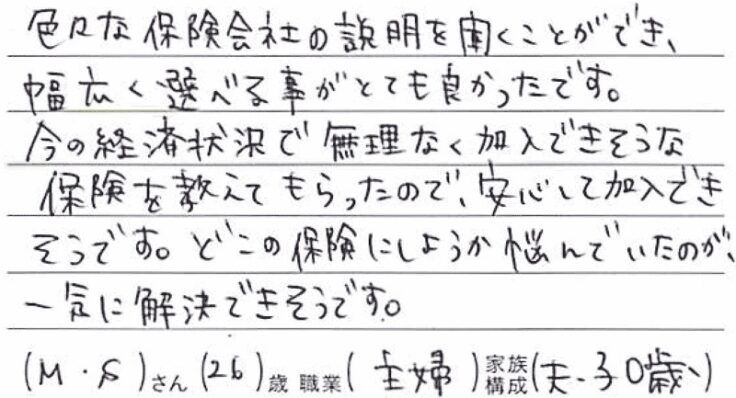 色々な保険会社の説明を聞くことができ、
幅広く選べる事がとても良かったです。
今の経済状況で無理なく加入できそうな
保険を教えてもらったので、安心して加入でき
そうです。どこの保険にしようか悩んでいたのが、
一気に解決できそうです。
(M・S)さん(26)歳 職業(主婦)家族構成(夫、子0歳)